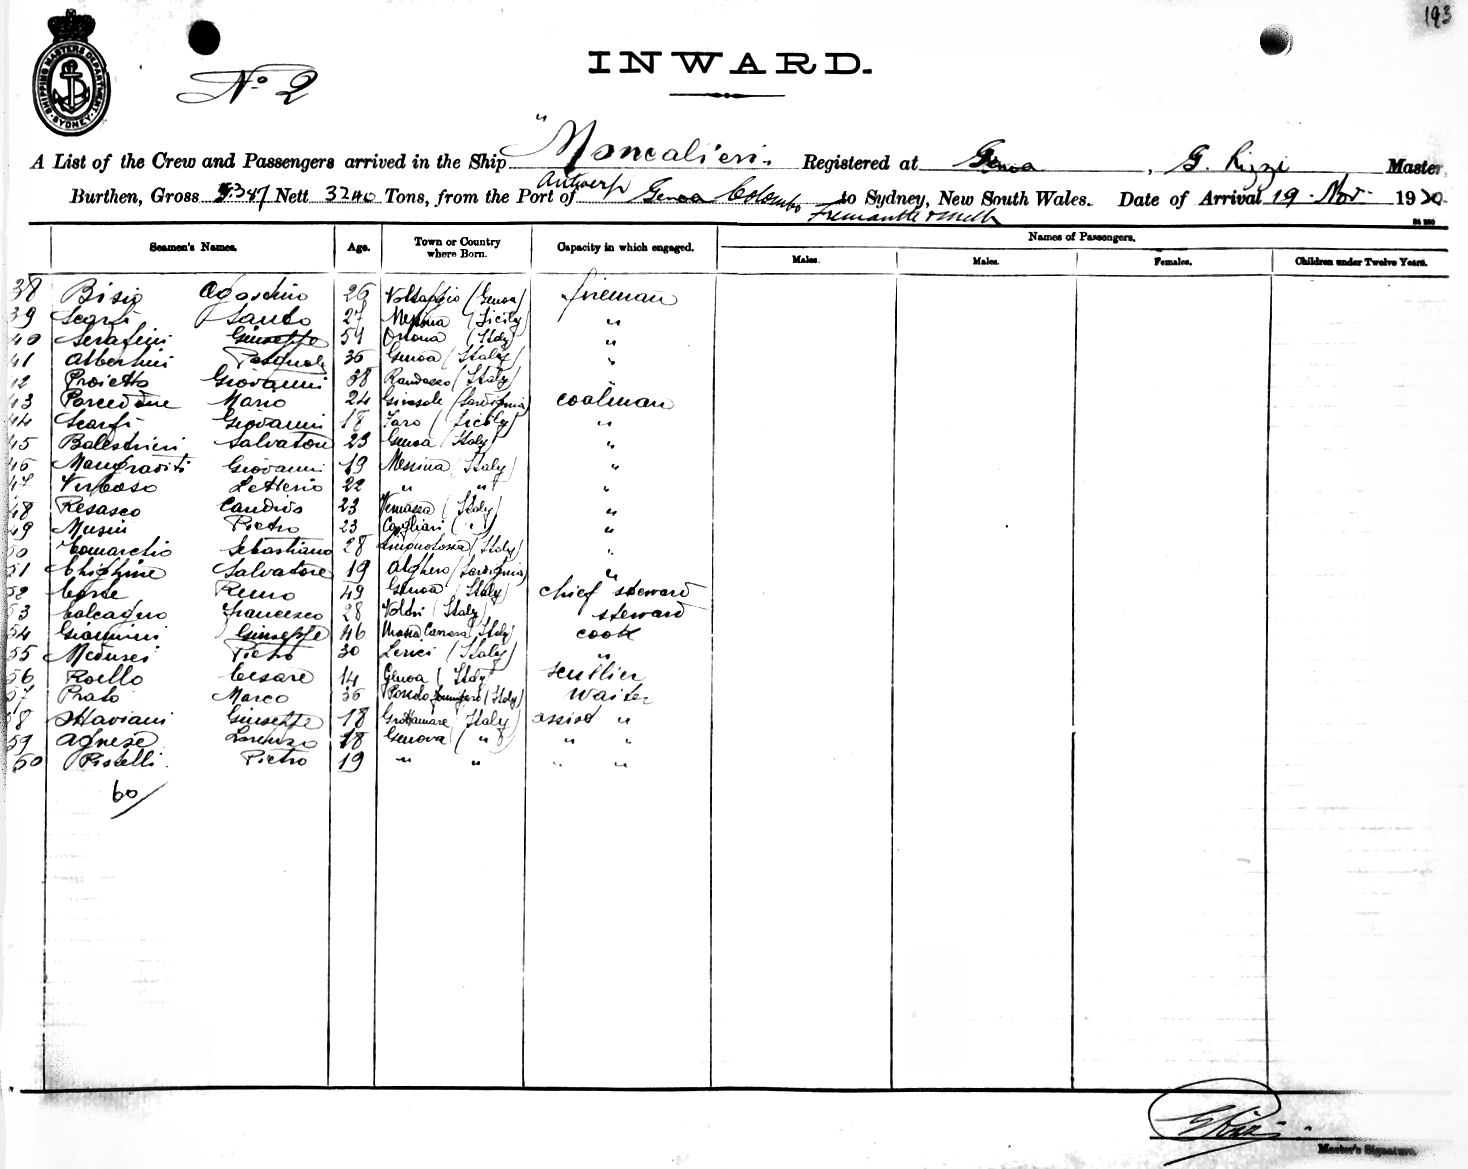 193
SHIPPING MASTERS DEPARTMENT
SYDNEY
No. 2
INWARD.
A List of the Crew and Passengers arrived in the Ship "Moncalieri. Registered at Genoa, G. Rizzi Master
Burthen, Gross 5.347 Nett 3240 Tons, from the Port of Antwerp Genoa Colombo Fremantle & Melb to Sydney, New South Wales. Date of Arrival 19 Nov 1920.
Seamen's Names. Age. Town or Country where Born. Capacity in which engaged. Names of Passengers.
Males. Males. Females. Children under Twelve Years.
38 Bisio Agostino 26 Voltaggio (Genoa) fireman
39 Scarfi Santo 27 Messina (Sicily) "
40 Serafini Giuseppe 51 Ortona (Italy) "
41 Albertini Pasquale 36 Genoa (Italy) "
42 Proietto Giovanni 38 Randazzo (Italy) "
43 Mario 24 (Sardignia) coalman
44 Scarfi Giovanni 18 Faro (Sicily) "
45 Balestrieri Salvatore 23 Genoa (Italy) "
46 Mangraviti Giovanni 19 Messina (Italy) "
47 Verboso Letterio 22 " " "
48 Resasco Candido 23 Vernazza (Italy) "
49 Musiu Pietro 23 Cagliari ( " ) "
50 Comarchio Sebastiano 28 (Italy) "
51 Chighine Salvatore 19 Alghero (Sardignia) "
52 Conte Remo 49 Genoa (Italy) chief steward
53 Calcagno Francesco 28 Voltri (Italy) steward
54 Giannini Giuseppe 46 Massa Carrara (Italy) cook
55 Medusei Pietro 30 Lerici (Italy) "
56 Roello Cesare 14 Genoa (Italy) scullier
57 Prato Marco 36 (Italy) waiter
58 Ottaviani Giuseppe 18 Grottamare (Italy) assist "
59 Agnese Lorenzo 18 Genova ( " ) " "
60 Pistelli Pietro 19 " " " "
60/
Master's Signature.